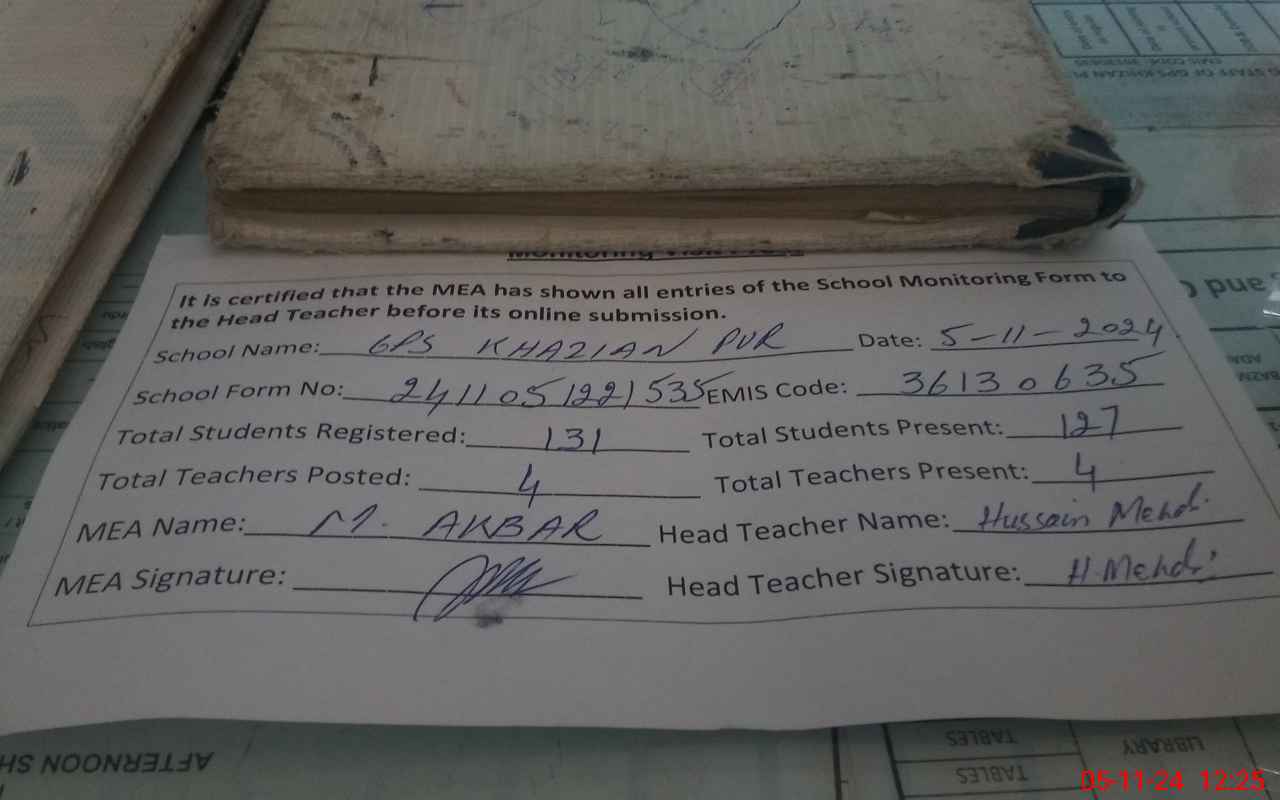 Monitoring Visit Proof
It is certified that the MEA has shown all entries of the School Monitoring Form to
the Head Teacher before its online submission.
School Name: GPS KHAZIAN PUR Date: 5-11-2024
School Form No: 2411051221535 EMIS Code: 36130635
Total Students Registered: 131 Total Students Present: 127
Total Teachers Posted: 4 Total Teachers Present: 4
MEA Name: M. AKBAR Head Teacher Name: Hussain Mehdi
MEA Signature: Head Teacher Signature: H. Mehdi
STAFF OF GPS KHIZAN P
and
AFTERNOON SH
TABLES
TABLES
LIBRARY
05-11-24 12:25